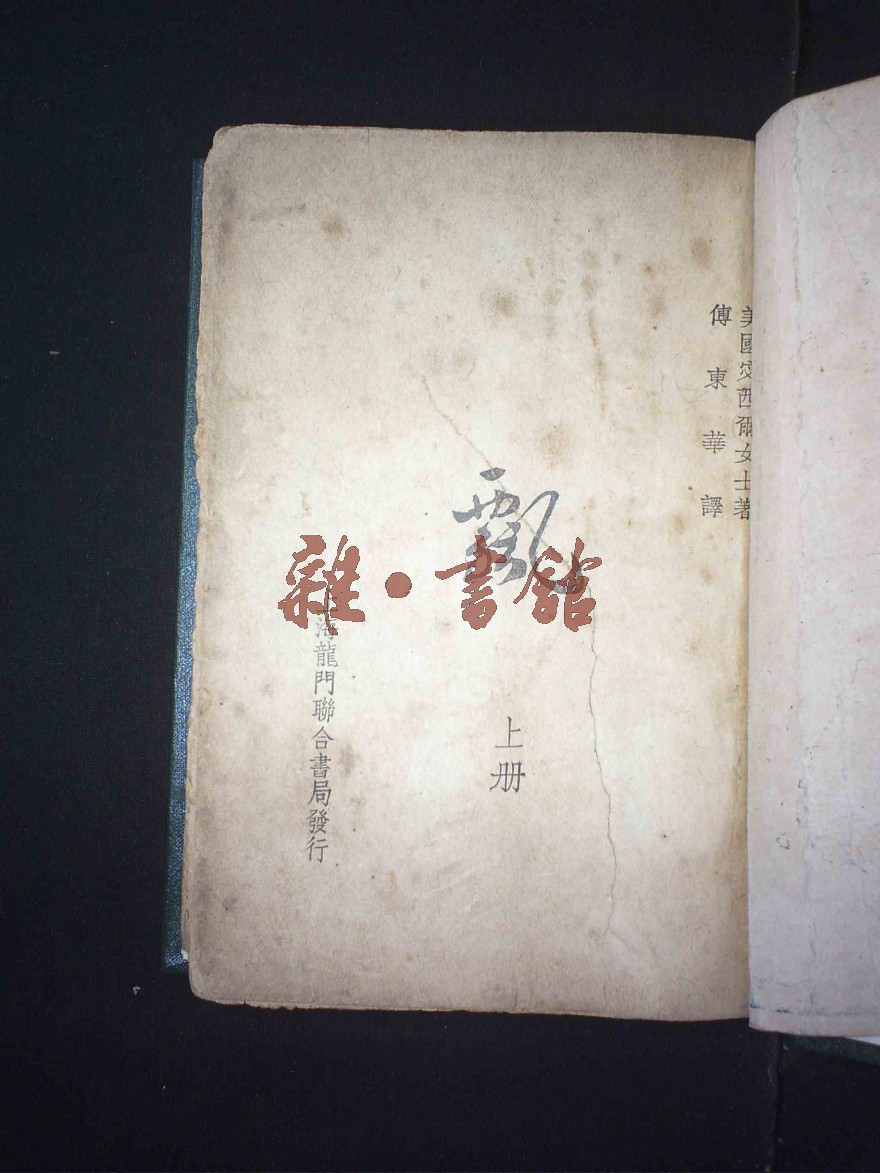 美國宓西爾女士著
傅東華譯
飄
上册
海龍門聯合書局發行
雜·書館